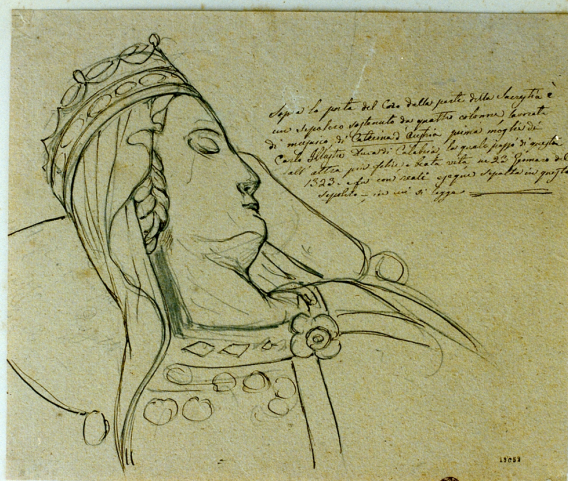 Sopra la porta del Coro dalla parte della Sacrestia è
un Sepolcro sostenuto da quattro colonne lavorate
di musaico, di Caterina d'Austria prima moglie di
Carlo Illustre Duca di Calabria, la quale passò di questa
all'altra più felice e beata vita, ne 22 Gennaro del
1323. fu con reali esequie sepolta in questo
sepolcro — in cui si legge